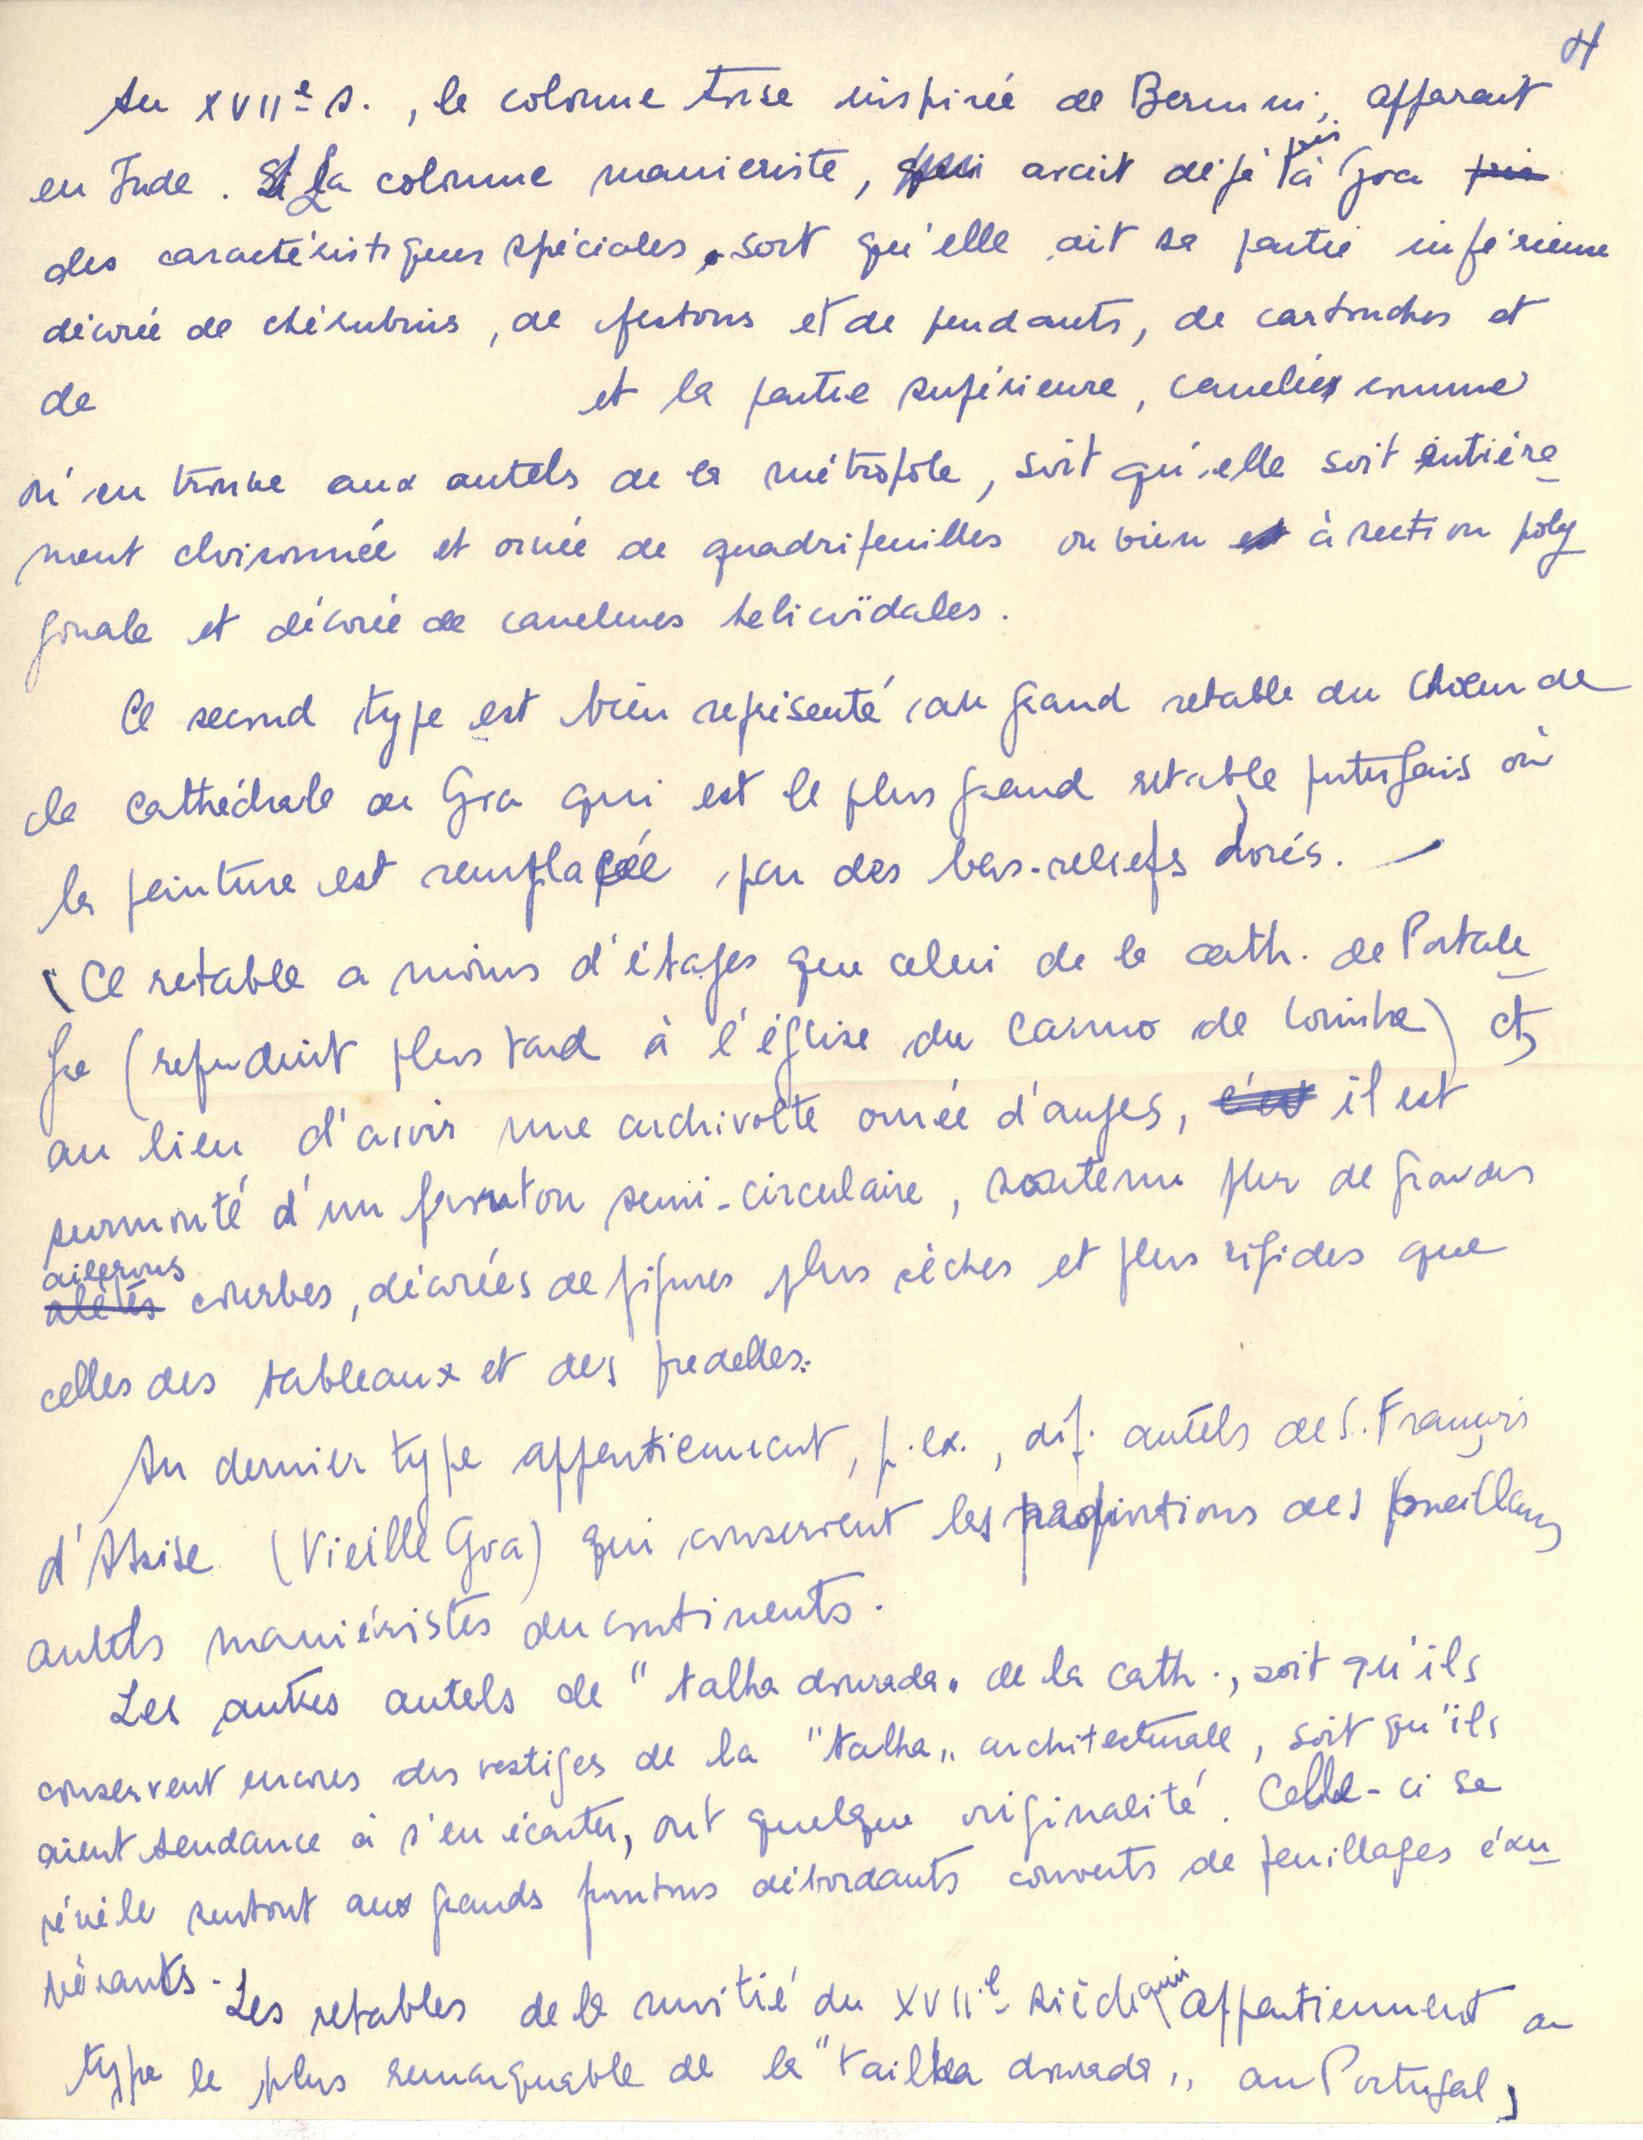 4
Au XVIIe s., la colonne torse inspirée de Bernini, apparaît
en Inde. La colonne maniériste, avait déjà pris à Goa
des caractéristiques spéciales, soit qu'elle ait sa partie inférieure
décorée de chérubins, de festons et de pendants, de cartouches et
de et la partie supérieure, canelée comme
on en trouve aux autels de la métropole, soit qu'elle soit entière-
ment cloisonnée et ornée de quadrifeuilles ou bien à section poly
gonale et décorée de canelures helicoïdales.
Ce second type est bien représenté au grand retable du Choeur de
la Cathédrale de Goa qui est le plus grand retable portugais où
la peinture est remplacée par des bas-reliefs dorés. —
(Ce retable a moins d'étages que celui de la cath. de Portale-
gre (reproduit plus tard à l'église du Carmo de Coimbra) et,
au lieu d'avoir une archivolte ornée d'anges, il est
surmonté d'un fronton semi-circulaire, soutenu par de grandes
ailerons courbes, décorées de figures plus sèches et plus rigides que
celles des tableaux et des predelles.
Au dernier type appartiennent, p. ex., dif. autels de S. François
d'Assise (Vieille Goa) qui conservent les proportions des
autels maniéristes du continents.
Les autres autels de "talha dourada" de la cath., soit qu'ils
conservent encores des vestiges de la "talha" architecturale, soit qu'ils
aient tendance à s'en écarter, ont quelque originalité. Celle-ci se
révèle surtout aux grands frontons débordants couverts de feuillages exu-
bérants. Les retables de la moitié du XVIIe siècle qui appartiennent au
type le plus remarquable de la "tailha dourada" au Portugal,